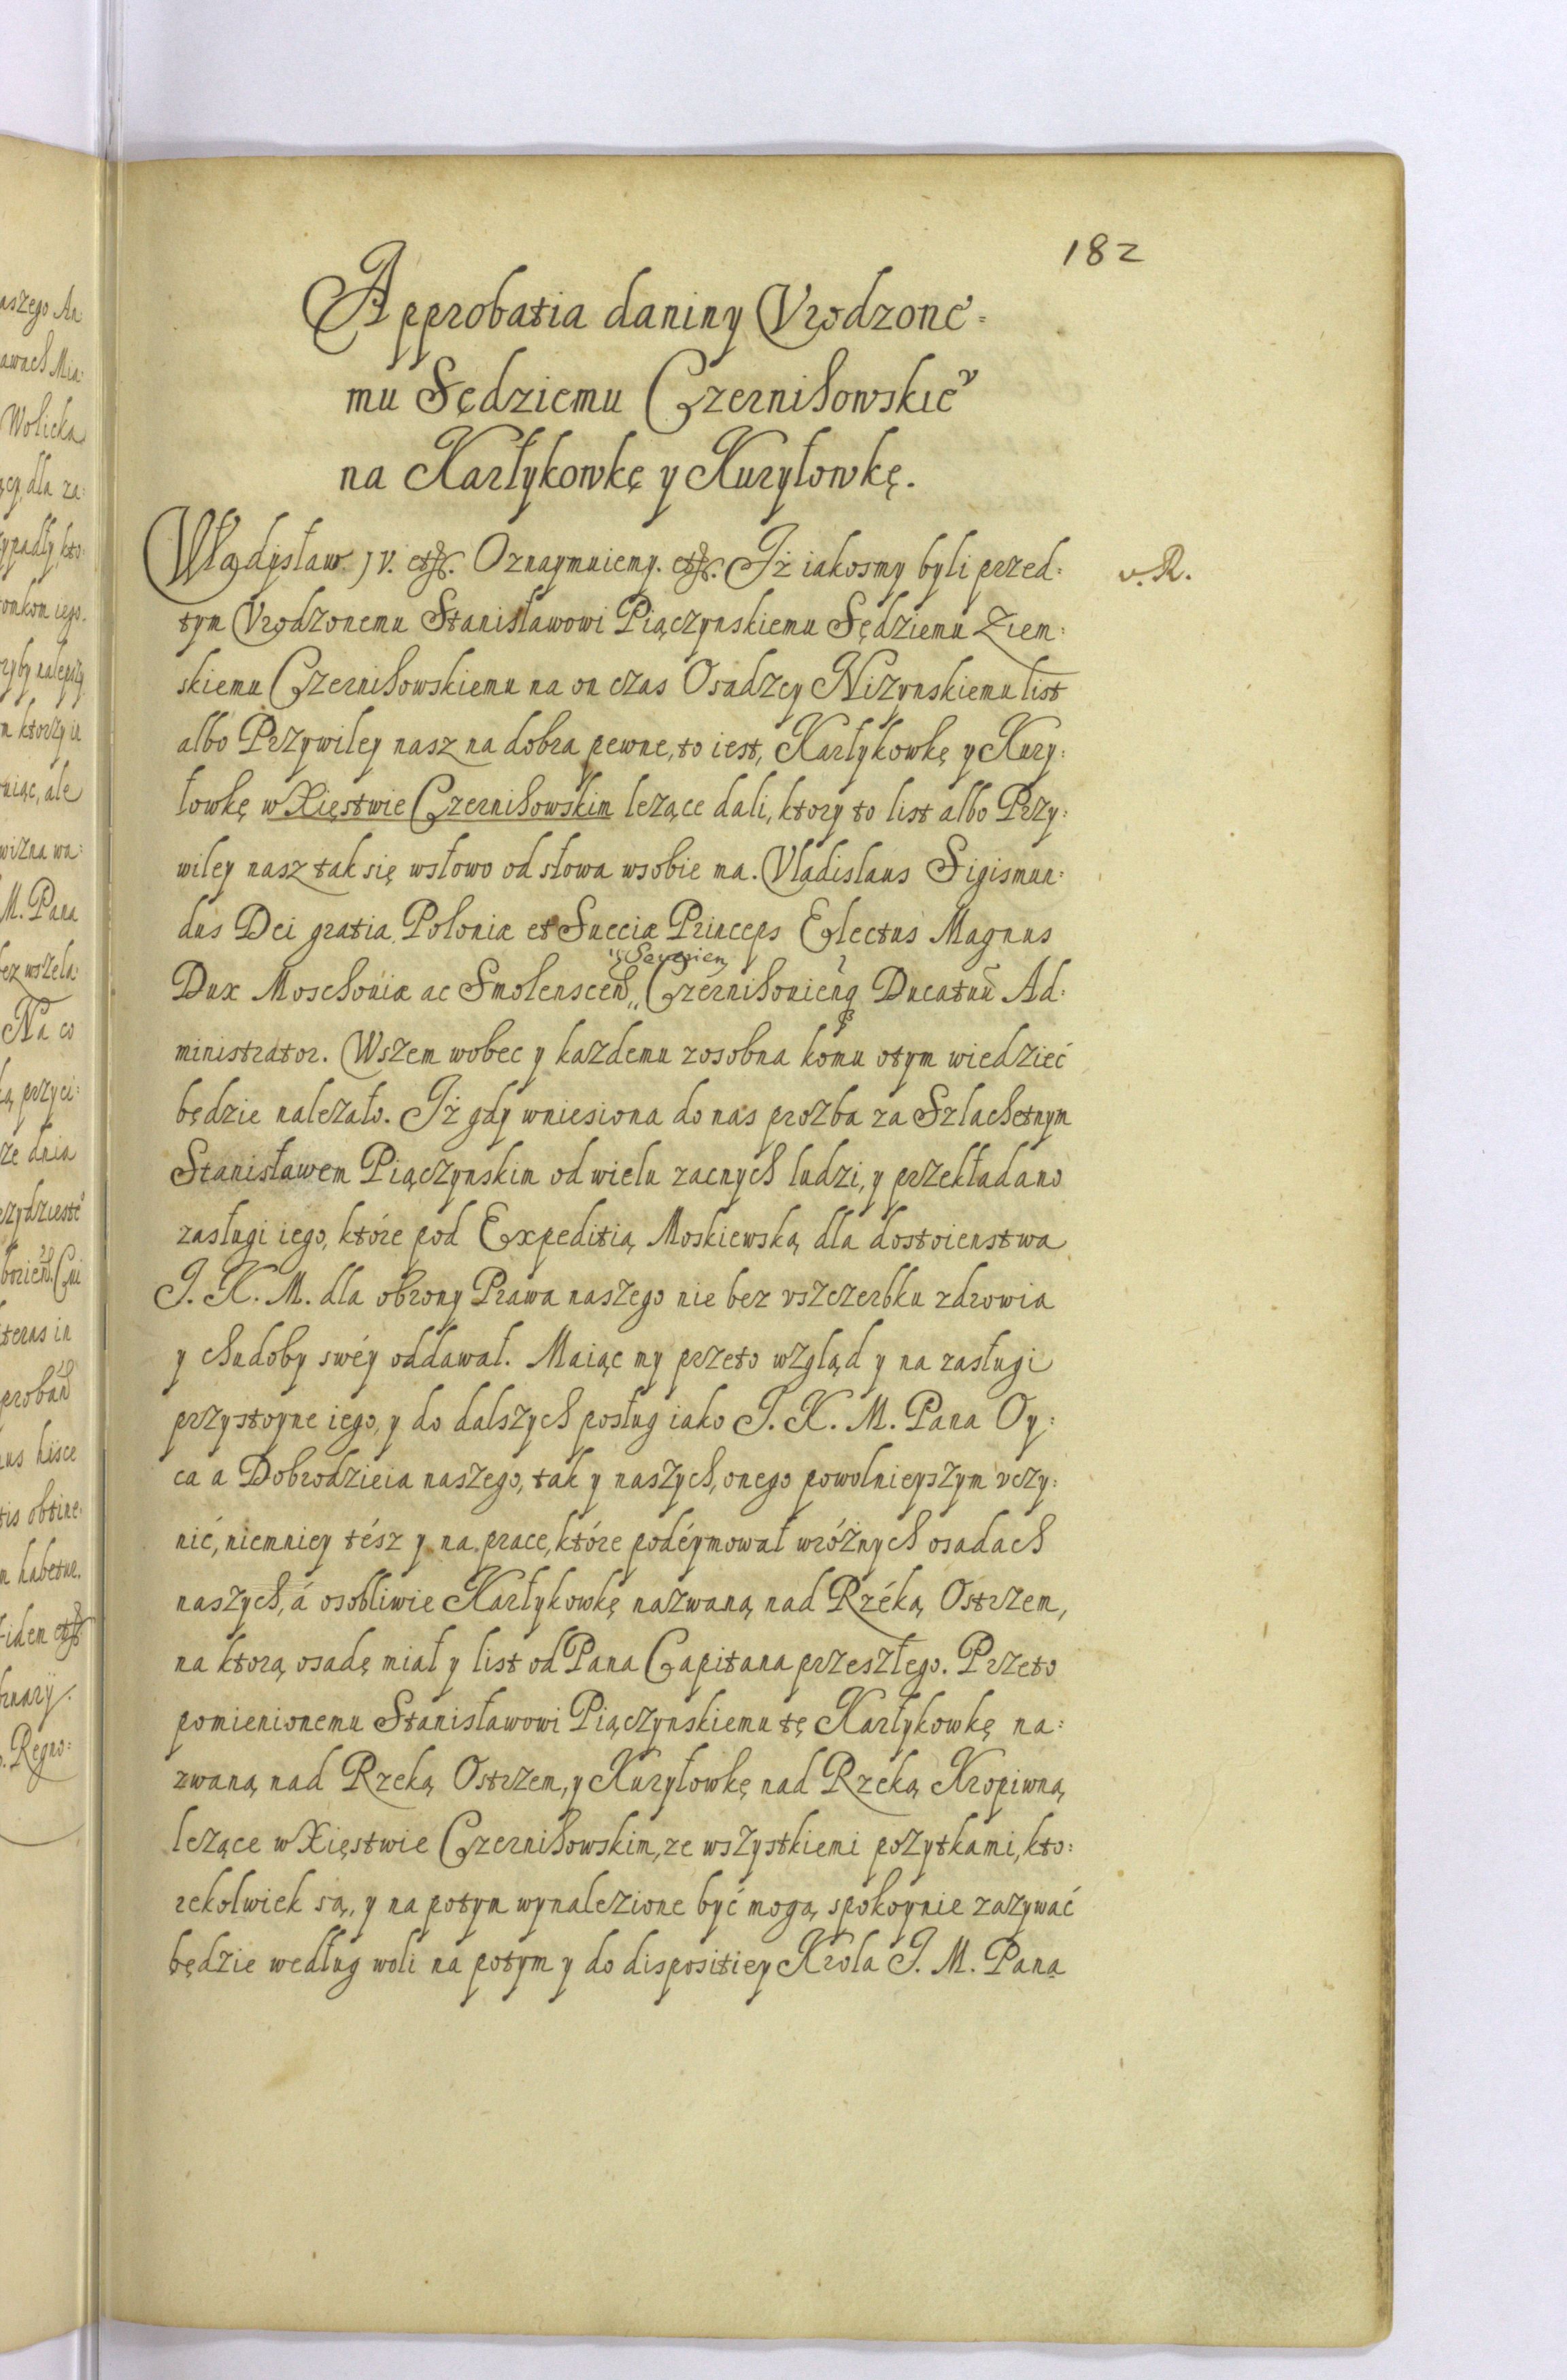 182
Approbatia daniny Vrodzone=
mu Sędziemu Czernihowskie͏ᵛ
na Kartykowkę y Kuryłowkę.
Władysław IV. etc. Oznaymuiemy. etc. Iż iakosmy byli przed=
v. R.
tym Vrodzonemu Stanisławowi Piączynskiemu Sędziemu Ziem=
skiemu Czernihowskiemu na on czas Osadzcy Niżynskiemu list
albo Przywiley nasz na dobra pewne, to iest, Kartykowkę y Kury=
łowkę w Xięstwie Czernihowskim leżące dali, ktory to list albo Przy=
wiley nasz tak się wsłowo od słowa wsobie ma. Vladislaus Sigismun=
dus Dei gratia Poloniæ et Sueciæ Princeps Electus Magnus
Severien
Dux Moschoviæ ac Smolenscen, Czernihovienq Ducatuũ Ad=
ministrator. Wszem wobec y kazdemu zosobna komu otym wiedzieć
będzie należało. Iż gdy wniesiona do nas prozba za Szlachetnym
Stanisławem Piączynskim od wielu zacnych ludzi, y przekładano
zasługi iego, które pod Expeditią Moskiewską dla dostoienstwa
I. K. M. dla obrony Prawa naszego nie bez vszczerbku zdrowia
y chudoby swéy oddawał. Maiąc my przeto wzgląd y na zasługi
przystoyne iego, y do dalszych posług iako I. K. M. Pana Oy=
ca a Dobrodzieia naszego, tak y naszych, onego powolnieyszym vczy=
nić, niemniey tész y na prace, które podéymował wróżnych osadach
naszych, á osobliwie Kartykowkę nazwaną nad Rzéką Ostrzem,
na ktorą osadę miał y list od Pana Capitana przeszłego. Przeto
pomienionemu Stanisławowi Piączynskiemu tę Kartykowkę na=
zwaną nad Rzeką Ostrzem, y Kuryłowkę nad Rzéką Kropiwną
leżące w Xięstwie Czernihowskim, ze wszystkiemi pożytkami, kto=
rekolwiek są, y na potym wynalezione być mogą spokoynie zażywać
będzie według woli na potym y do dispositiey Krola I. M. Pana